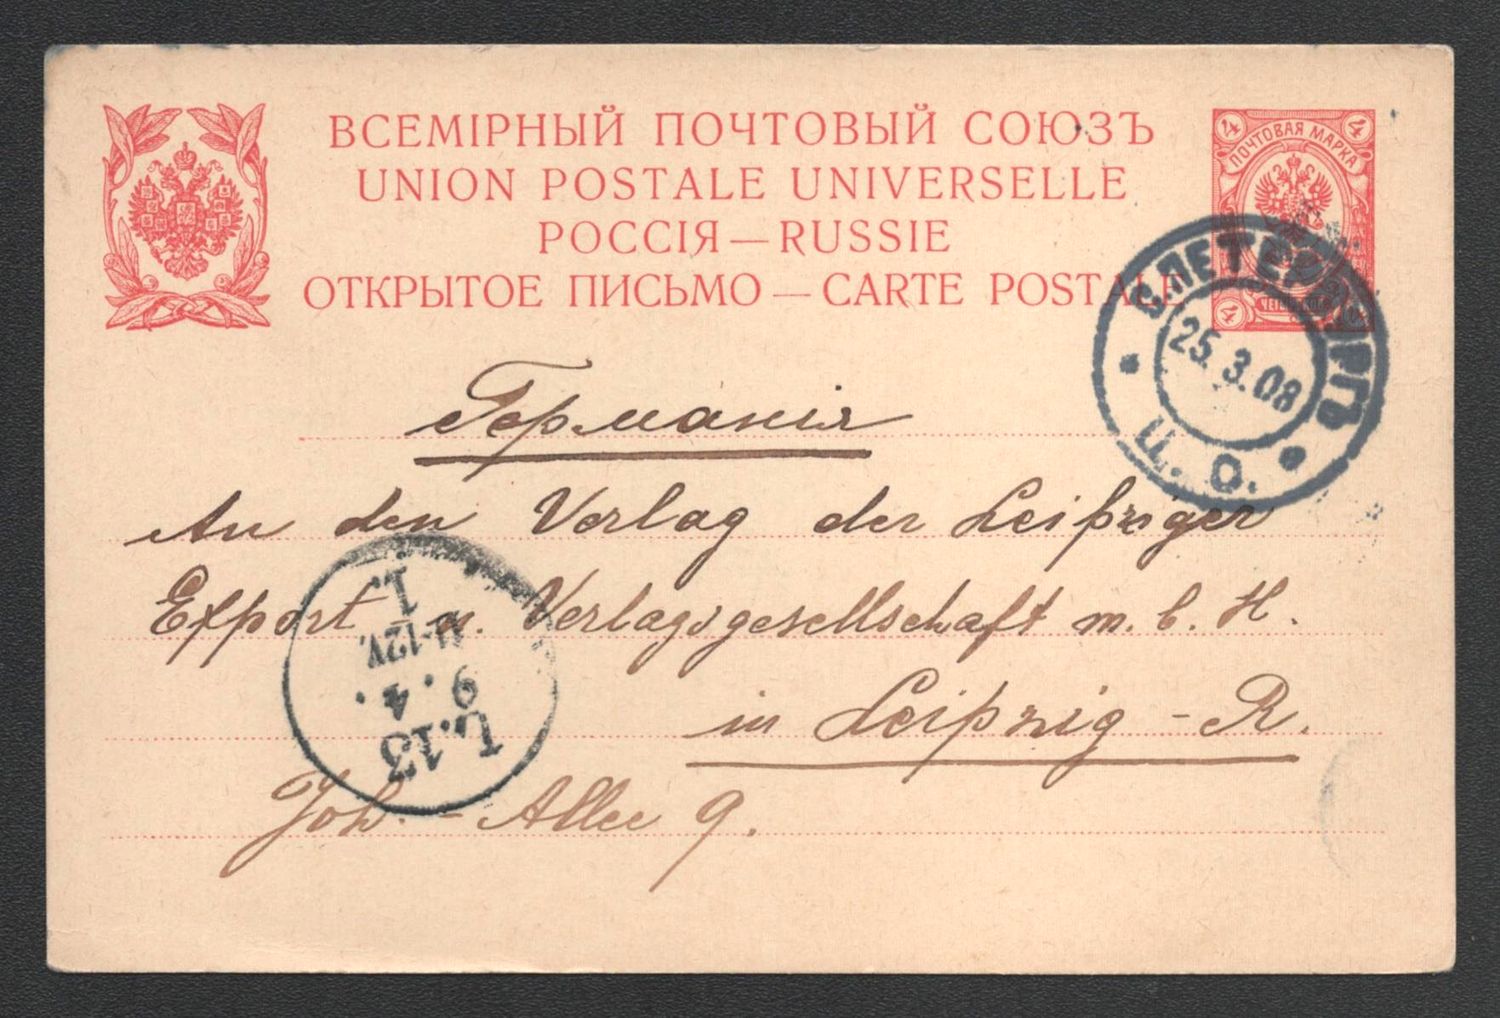 ВСЕМІРНЫЙ ПОЧТОВЫЙ СОЮЗЪ
UNION POSTALE UNIVERSELLE
РОССІЯ — RUSSIE
ОТКРЫТОЕ ПИСЬМО — CARTE POSTALE
4 4
ПОЧТОВАЯ МАРКА
4
С.ПЕТЕРБУРГЪ
25.3.08
Ц. О.
Германія
An den Verlag der Leipziger
Export u. Verlagsgesellschaft m. b. H.
in Leipzig - R.
Joh. - Allee 9.
L.13
9.4.
11-12V.
1.